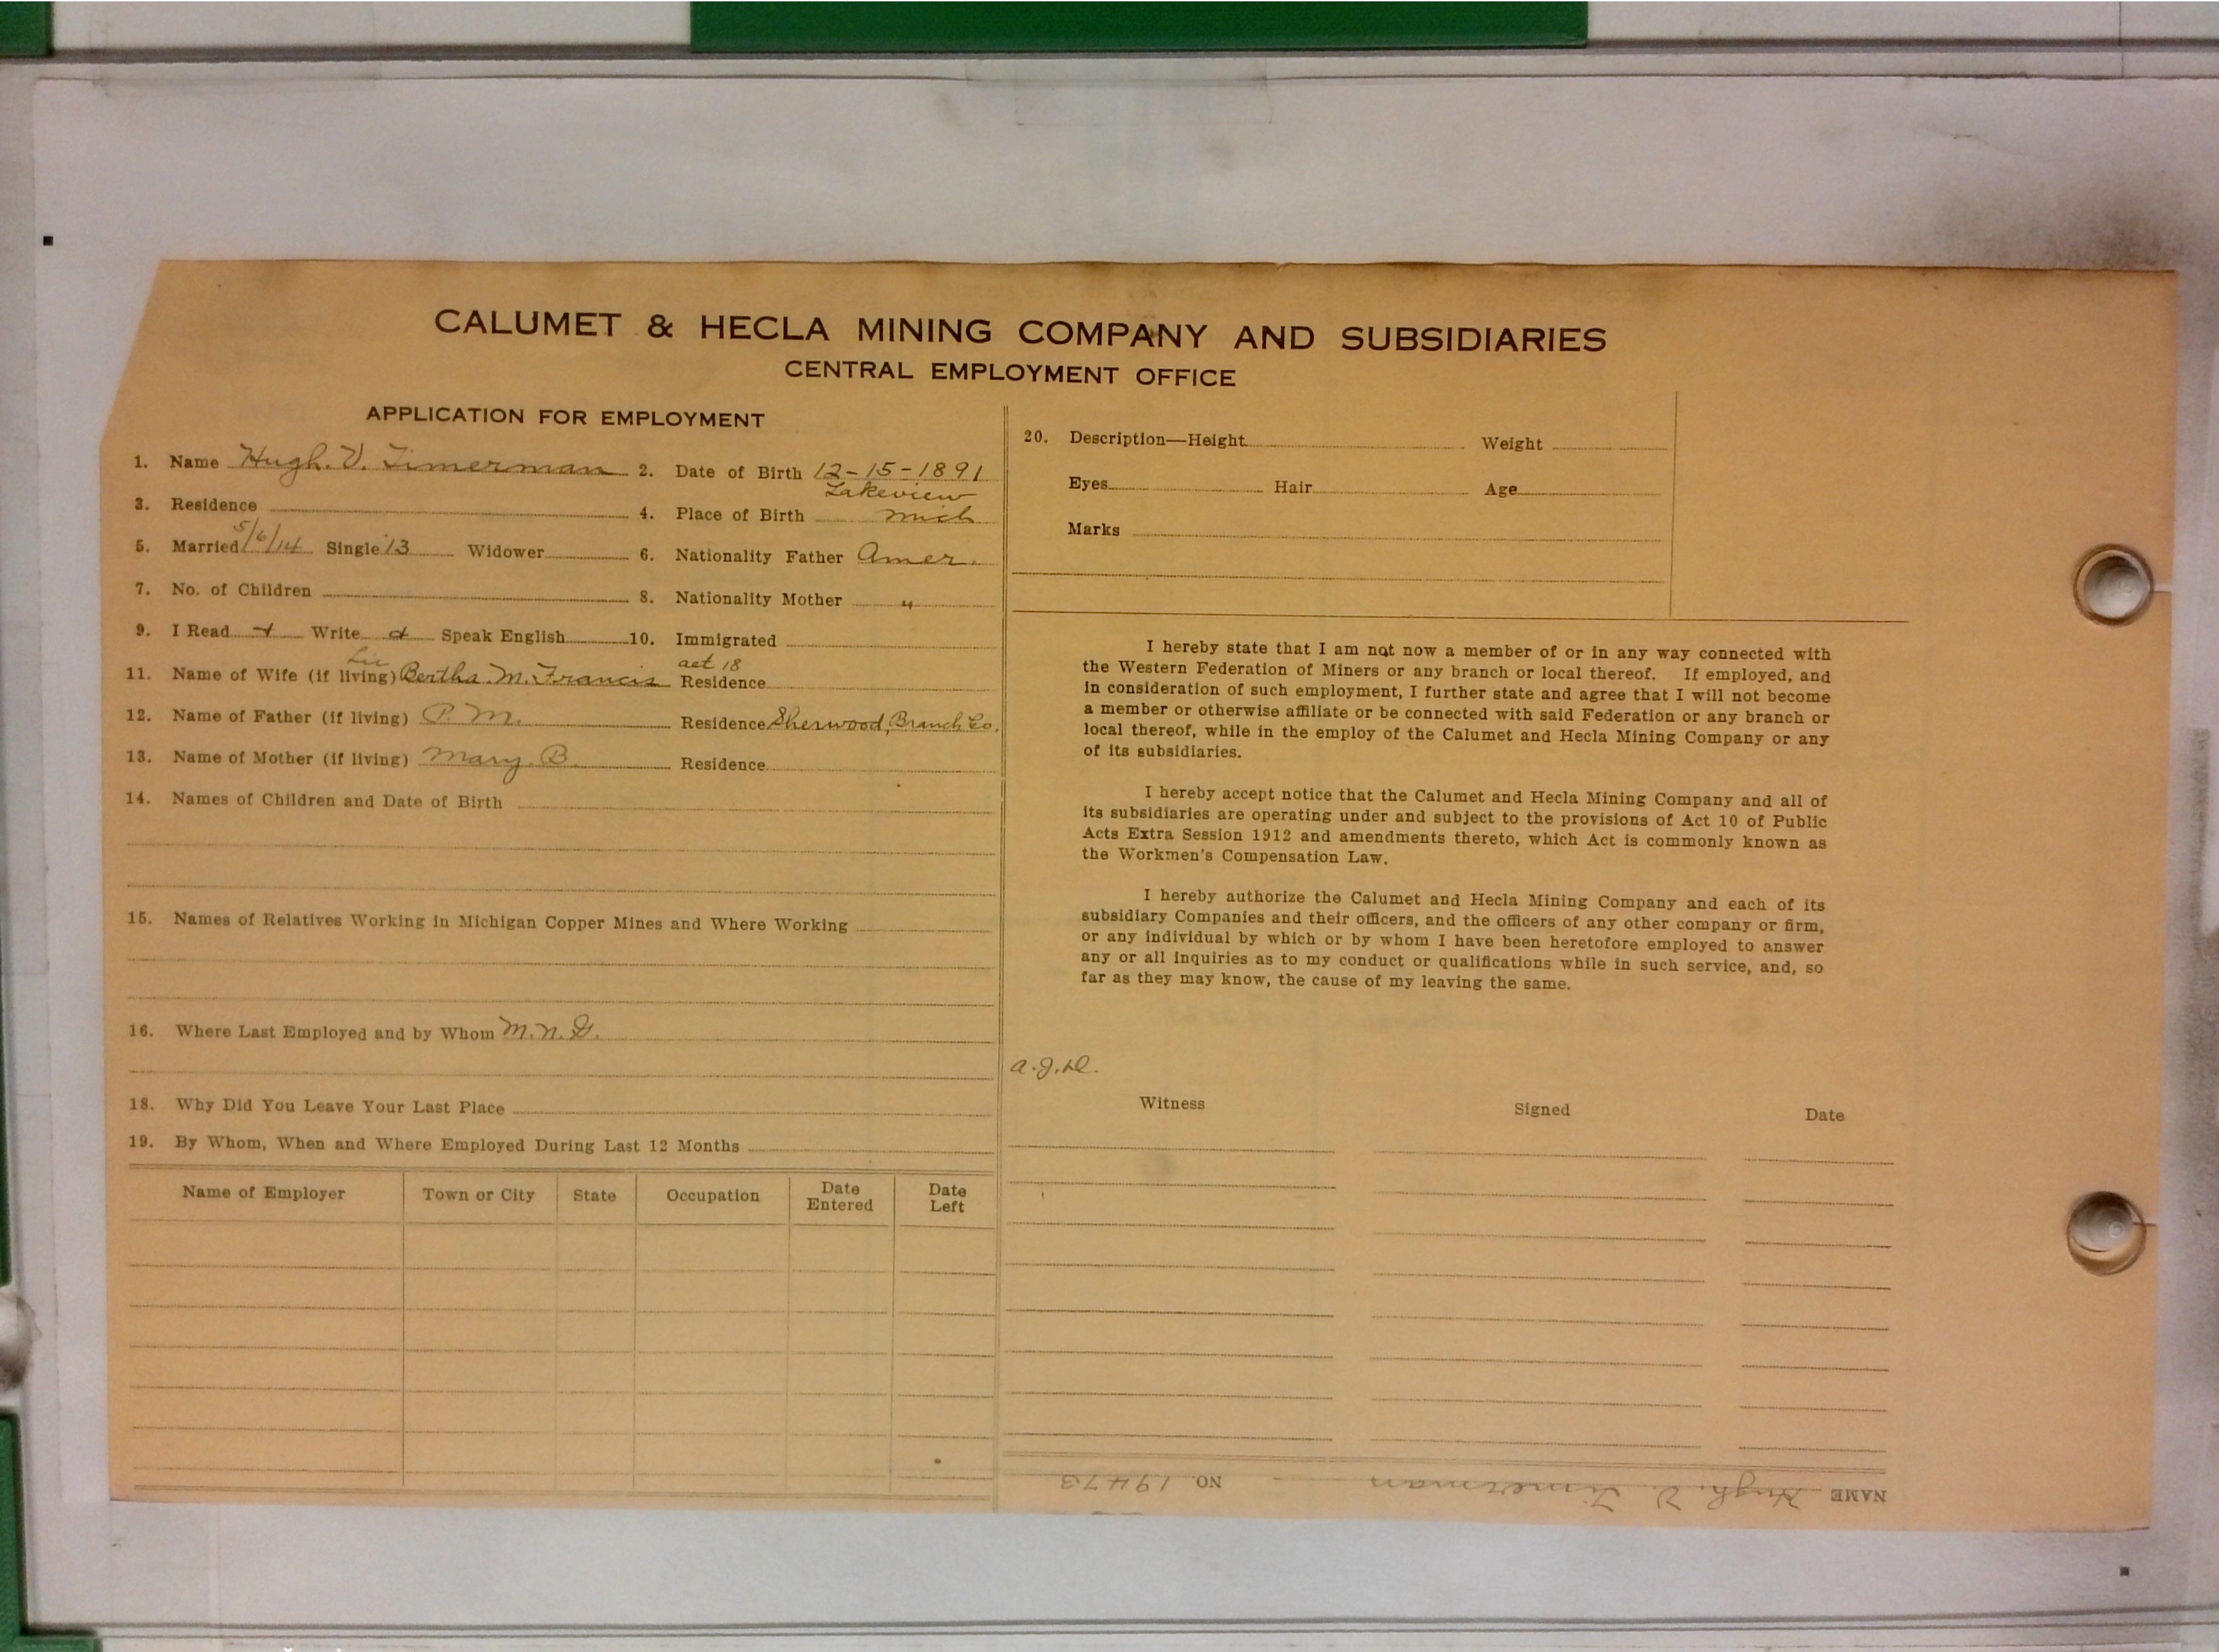 CALUMET & HECLA MINING COMPANY AND SUBSIDIARIES
CENTRAL EMPLOYMENT OFFICE
APPLICATION FOR EMPLOYMENT
1. Name Hugh. V. Timerman 2. Date of Birth 12-15-1891
Lakeview
3. Residence 4. Place of Birth Mich
5. Married 5/6/14 Single '13 Widower 6. Nationality Father Amer.
7. No. of Children 8. Nationality Mother "
9. I Read Write Speak English 10. Immigrated
Lic aet 18
11. Name of Wife (if living) Bertha. M. Francis Residence
12. Name of Father (if living) P. M. Residence Sherwood, Branch Co.
13. Name of Mother (if living) Mary. B. Residence
14. Names of Children and Date of Birth
15. Names of Relatives Working in Michigan Copper Mines and Where Working
16. Where Last Employed and by Whom M. N. G.
18. Why Did You Leave Your Last Place
19. By Whom, When and Where Employed During Last 12 Months
Name of Employer Town or City State Occupation Date Entered Date Left
20. Description—Height Weight
Eyes Hair Age
Marks
I hereby state that I am not now a member of or in any way connected with
the Western Federation of Miners or any branch or local thereof. If employed, and
in consideration of such employment, I further state and agree that I will not become
a member or otherwise affiliate or be connected with said Federation or any branch or
local thereof, while in the employ of the Calumet and Hecla Mining Company or any
of its subsidiaries.
I hereby accept notice that the Calumet and Hecla Mining Company and all of
its subsidiaries are operating under and subject to the provisions of Act 10 of Public
Acts Extra Session 1912 and amendments thereto, which Act is commonly known as
the Workmen's Compensation Law.
I hereby authorize the Calumet and Hecla Mining Company and each of its
subsidiary Companies and their officers, and the officers of any other company or firm,
or any individual by which or by whom I have been heretofore employed to answer
any or all inquiries as to my conduct or qualifications while in such service, and, so
far as they may know, the cause of my leaving the same.
Witness Signed Date
NAME Hugh. V. Timerman NO. 19473